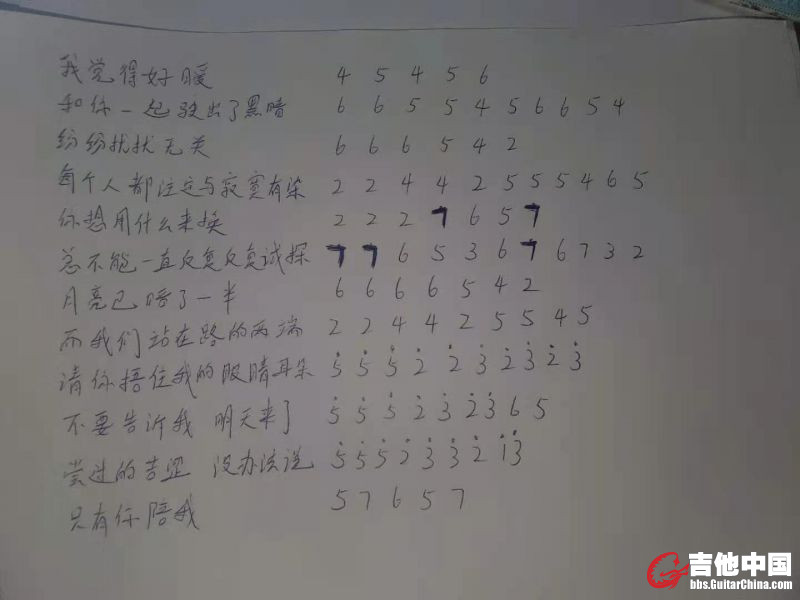 我觉得好暖 4 5 4 5 6
和你一起驶出了黑暗 6 6 5 5 4 5 6 6 5 4
纷纷扰扰无关 6 6 6 5 4 2
每个人都注定与寂寞有染 2 2 4 4 2 5 5 5 4 6 5
你想用什么来换 2 2 2 7 6 5 7
总不能一直反复反复试探 7 7 6 5 3 6 7 6 7 3 2
月亮已暗了一半 6 6 6 6 5 4 2
而我们站在路的两端 2 2 4 4 2 5 5 4 5
请你捂住我的眼睛耳朵 5̇ 5̇ 5̇ 2̇ 2̇ 3̇ 2̇ 3̇ 2̇ 3̇
不要告诉我 明天来了 5̇ 5̇ 5̇ 2̇ 3̇ 2̇ 3̇ 6 5
尝过的苦涩 没办法说 5̇ 5̇ 5̇ 2̇ 3̇ 3̇ 2̇ 1̇ 3̇
只有你陪我 5 7 6 5 7
吉他中国
bbs.GuitarChina.com